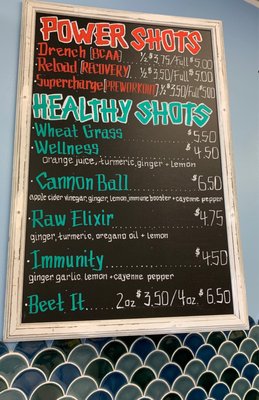 POWER SHOTS
Drench [BCAA] ½ $3.75/Full $5.00
Reload [RECOVERY] ½ $3.50/Full $5.00
Supercharge [PREWORKOUT] ½ $3.50/Full $5.00
HEALTHY SHOTS
Wheat Grass $5.50
Wellness $4.50
orange juice, turmeric, ginger + lemon
Cannon Ball $6.50
apple cider vinegar, ginger, lemon, immune booster + cayenne pepper
Raw Elixir $4.75
ginger, turmeric, oregano oil + lemon
Immunity $4.50
ginger, garlic, lemon + cayenne pepper
Beet It 2oz $3.50/4oz $6.50